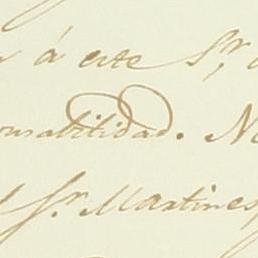 á este Sr.
onsabilidad. No
Sr. Martines